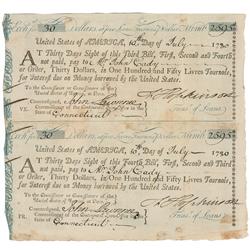 Exch. 30 Dollars, Numb. 2595
United States of AMERICA, July 1780
AT Thirty Days Sight of this Fourth Bill, First, Second and Third
not paid, pay to Mr John Eady
or Order, Thirty Dollars, in One Hundred and Fifty Livres Tournois,
for Interest due on Money borrowed by the United States.
To the Commissioner or Commissioners of the
United States of America, at Paris.
Countersigned, John Lawrence
Commissioner of the Continental Loan-
VE. Office, in the State of
Connecticut Treas. of Loans.
30 Dollars, Numb. 2595
United States of AMERICA, July 1780
AT Thirty Days Sight of this Fourth Bill, First, Second and Third
not paid, pay to Mr John Eady
or Order, Thirty Dollars, in One Hundred and Fifty Livres Tournois,
for Interest due on Money borrowed by the United States.
To the Commissioner or Commissioners of the
United States of America, at Paris.
Countersigned, John Lawrence
Commissioner of the Continental Loan-
PR. Office, in the State of
Connecticut Treas. of Loans.